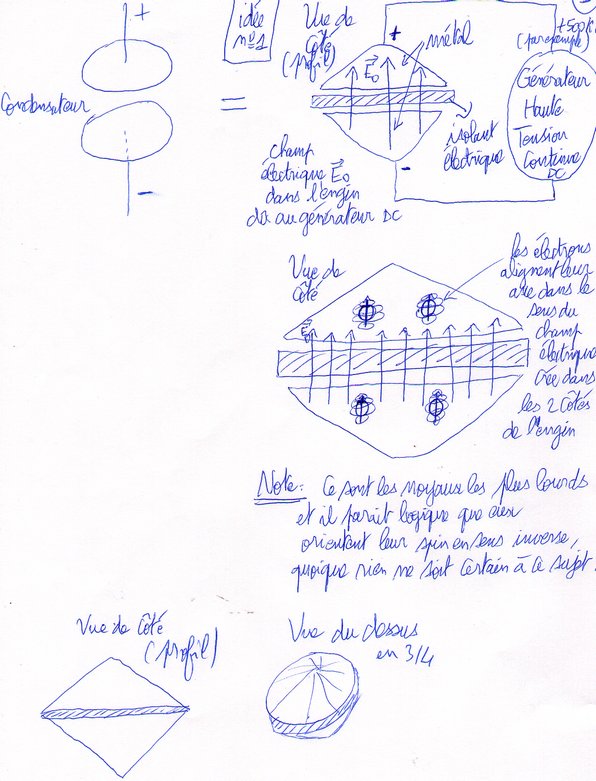 +
Condensateur
-
=
idée
n°1
Vue de
Côté
(profil)
+
métal
E₀
isolant
électrique
-
+500K
(par exemple)
Générateur
Haute
Tension
Continue
DC
champ
électrique E₀
dans l'engin
dû au générateur DC
Vue de
Côté
E₀
les électrons
alignent leur
axe dans le
sens du
champ
électrique
crée dans
les 2 côtés
de l'engin
Note: Ce sont les noyaux les plus lourds
et il parait logique que ceux
orientent leur spin en sens inverse,
quoique rien ne soit certain à ce sujet.
Vue de Côté
(profil)
Vue du dessus
en 3/4